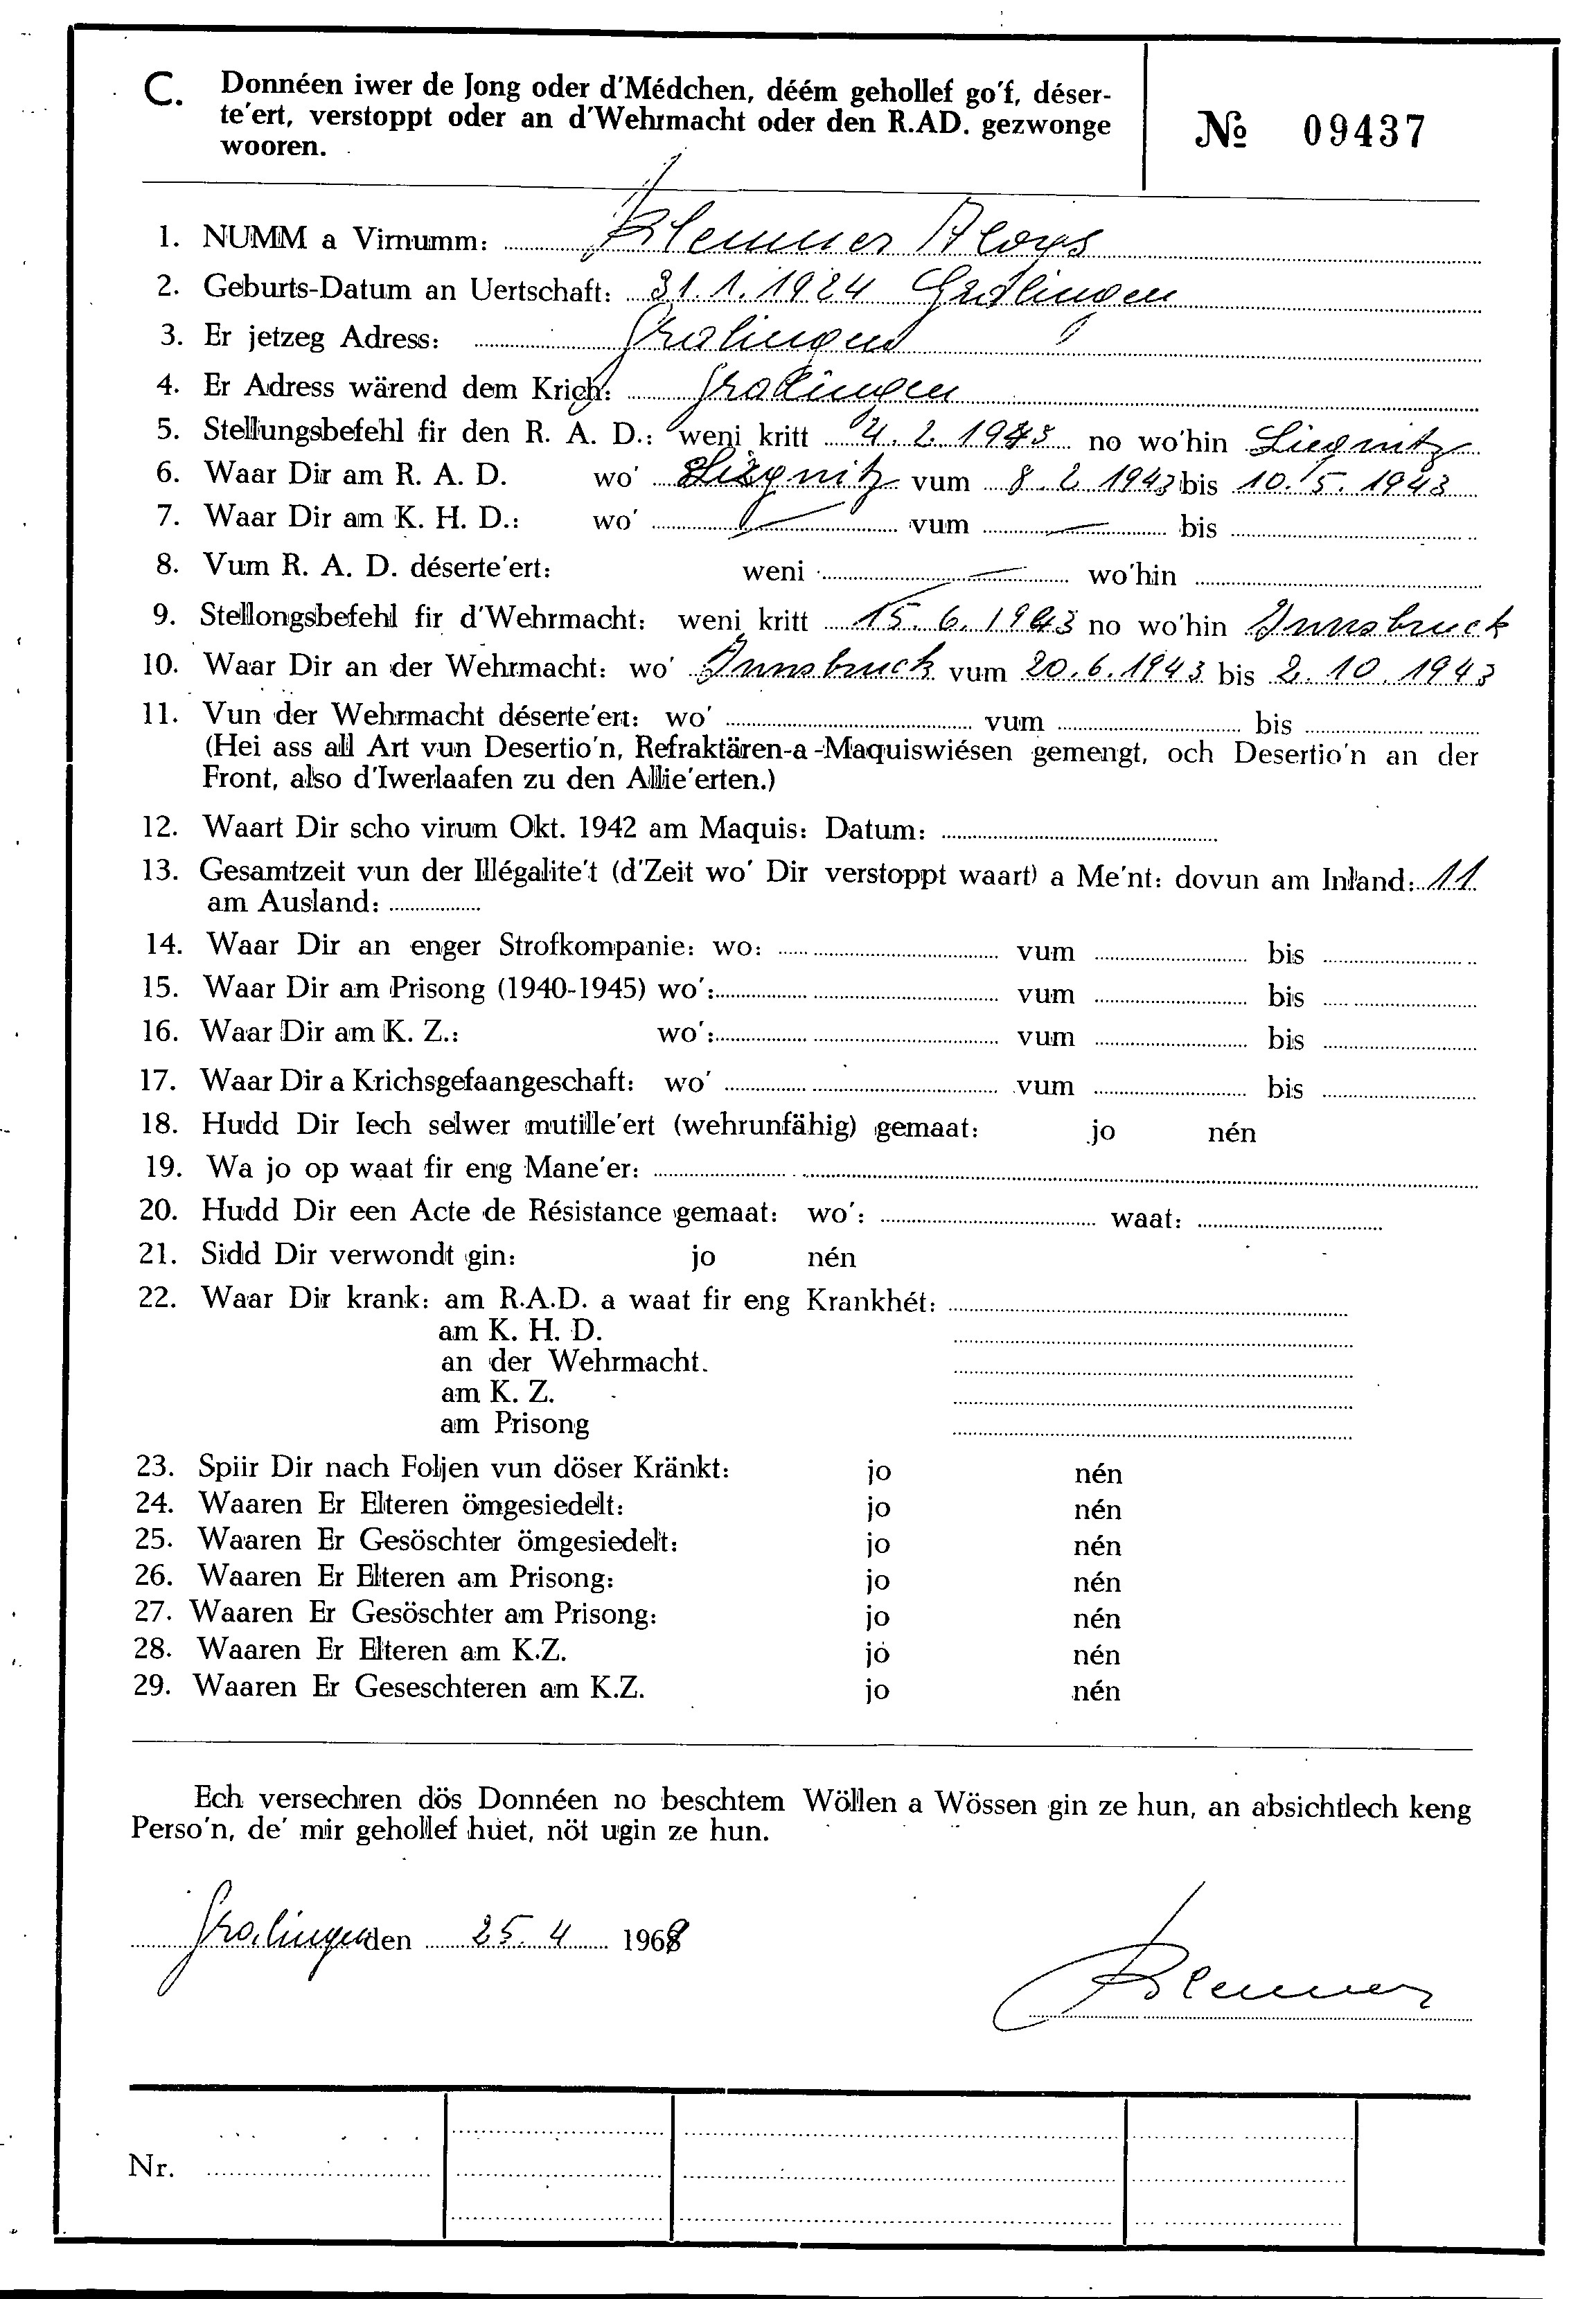 C. Donnéen iwer de Jong oder d'Médchen, déém gehollef go'f, déser-
te'ert, verstoppt oder an d'Wehrmacht oder den R.AD. gezwonge
wooren.
№ 09437
1. NUMM a Virnumm: Klemmer Aloys
2. Geburts-Datum an Uertschaft: 31.1.1924 Gralingen
3. Er jetzeg Adress: Gralingen
4. Er Adress wärend dem Krich: Gralingen
5. Stellungsbefehl fir den R. A. D.: weni kritt 4.2.1943 no wo'hin Liegnitz
6. Waar Dir am R. A. D. wo' Liegnitz vum 8.2.1943 bis 10.5.1943
7. Waar Dir am K. H. D.: wo' — vum — bis
8. Vum R. A. D. déserte'ert: weni — wo'hin
9. Stellongsbefehl fir d'Wehrmacht: weni kritt 15.6.1943 no wo'hin Innsbruck
10. Waar Dir an der Wehrmacht: wo' Innsbruck vum 20.6.1943 bis 2.10.1943
11. Vun der Wehrmacht déserte'ert: wo' vum bis
(Hei ass all Art vun Desertio'n, Refraktären-a-Maquiswiésen gemengt, och Desertio'n an der
Front, also d'Iwerlaafen zu den Allie'erten.)
12. Waart Dir scho virum Okt. 1942 am Maquis: Datum:
13. Gesamtzeit vun der Illégalite't (d'Zeit wo' Dir verstoppt waart) a Me'nt: dovun am Inland: 11
am Ausland:
14. Waar Dir an enger Strofkompanie: wo: vum bis
15. Waar Dir am Prisong (1940-1945) wo': vum bis
16. Waar Dir am K. Z.: wo': vum bis
17. Waar Dir a Krichsgefaangeschaft: wo' vum bis
18. Hudd Dir Iech selwer mutille'ert (wehrunfähig) gemaat: jo nén
19. Wa jo op waat fir eng Mane'er:
20. Hudd Dir een Acte de Résistance gemaat: wo': waat:
21. Sidd Dir verwondt gin: jo nén
22. Waar Dir krank: am R.A.D. a waat fir eng Krankhét:
am K. H. D.
an der Wehrmacht.
am K. Z.
am Prisong
23. Spiir Dir nach Foljen vun döser Kränkt: jo nén
24. Waaren Er Elteren ömgesiedelt: jo nén
25. Waaren Er Gesöschter ömgesiedelt: jo nén
26. Waaren Er Elteren am Prisong: jo nén
27. Waaren Er Gesöschter am Prisong: jo nén
28. Waaren Er Elteren am K.Z. jo nén
29. Waaren Er Geseschteren am K.Z. jo nén
Ech versechren dös Donnéen no beschtem Wöllen a Wössen gin ze hun, an absichtlech keng
Perso'n, de' mir gehollef huet, nöt ugin ze hun.
Gralingen den 25.4 1968
Klemmer
Nr.